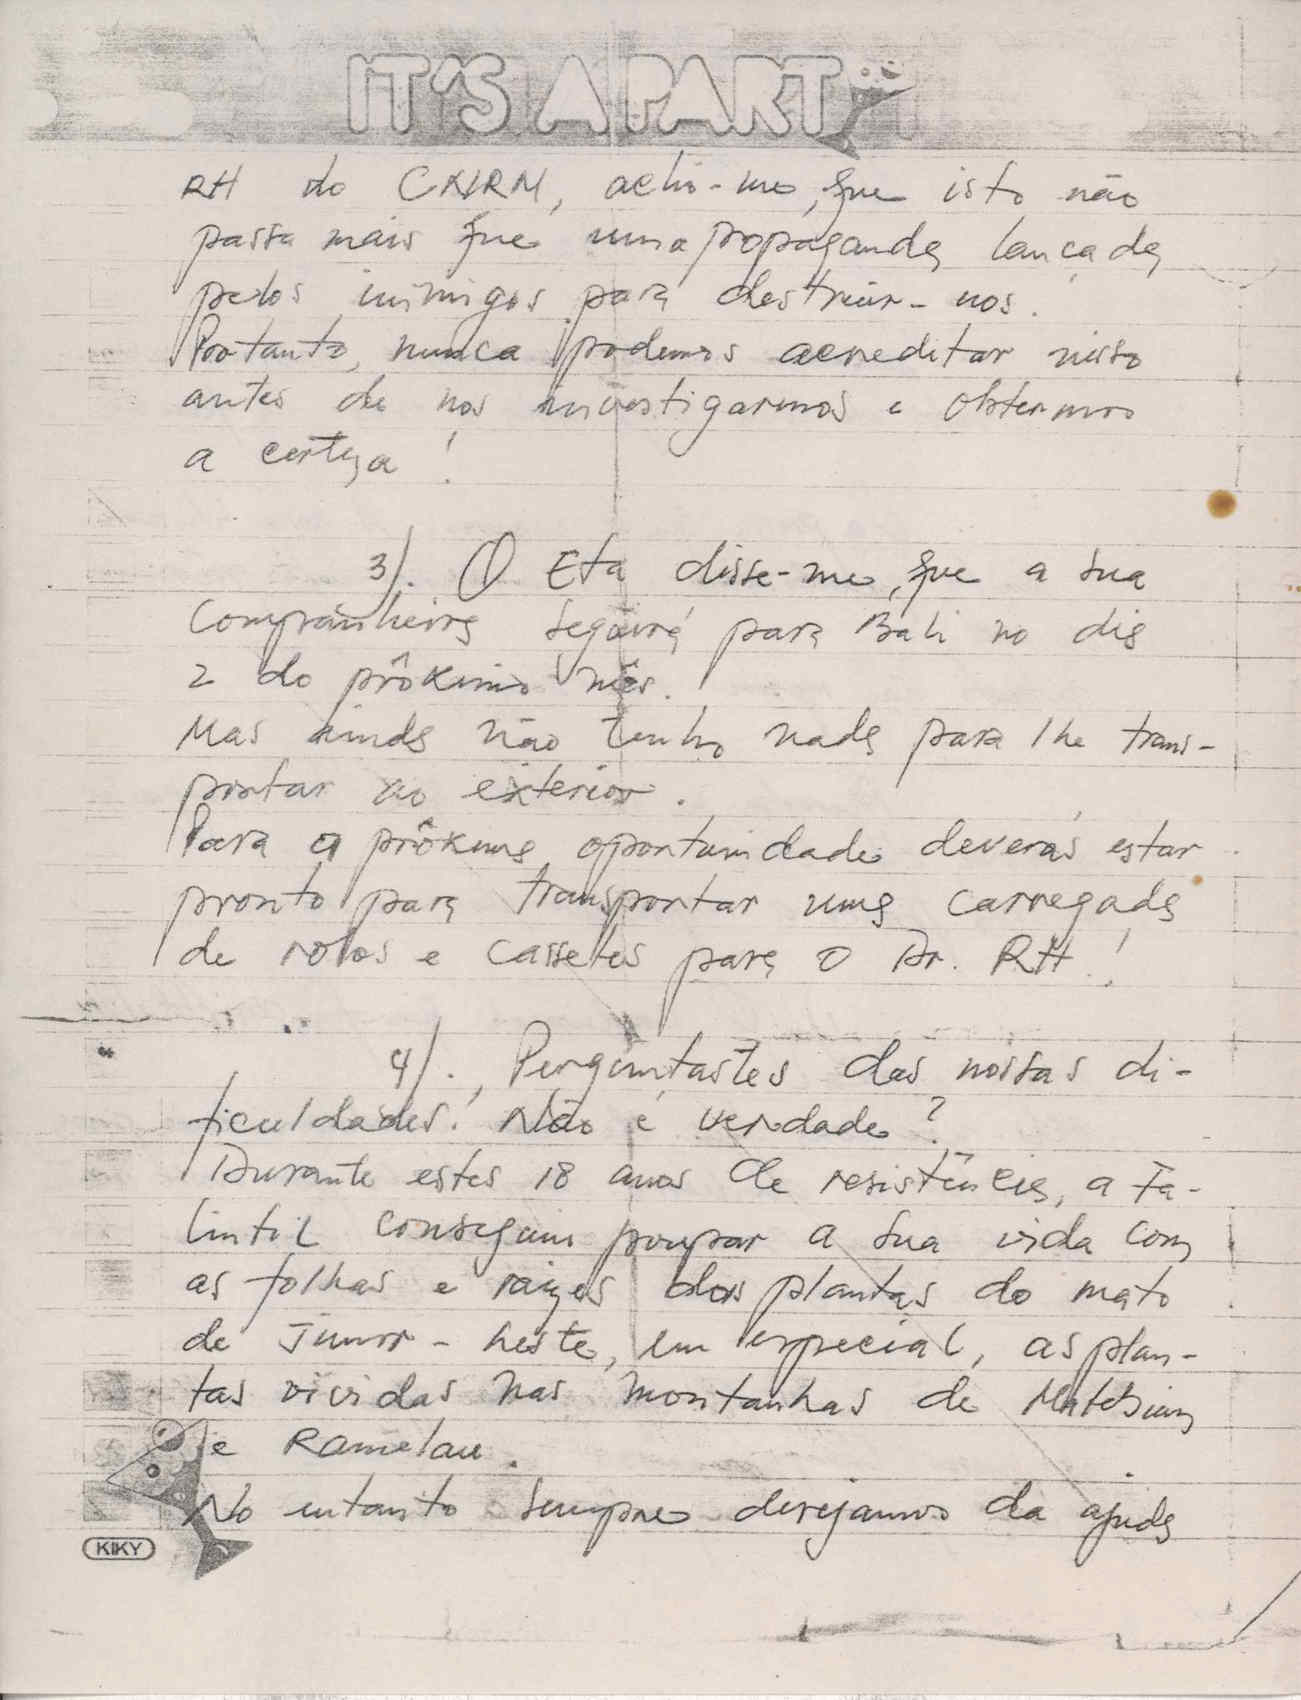 IT'S A PARTY
RH do CNRM, acho-me, que isto não
passa mais que uma propaganda lançada
pelos inimigos para destruir-nos.
Portanto, nunca podemos acreditar nisso
antes de nos investigarmos e obtermos
a certeza!
3). O Eta disse-me, que a sua
Companheira seguirá para Bali no dia
2 do prôximo mês.
Mas ainda não tenho nada para lhe trans-
portar ao exterior.
Para a prôxima oportunidade deverás estar
pronto para transportar uma carregada
de rolos e cassetes para o Dr. RH!
4). Perguntastes das nossas di-
ficuldades! Não é verdade?
Durante estes 18 anos de resistência, a Fa-
lintil conseguiu poupar a sua vida com
as folhas e raizes das plantas do mato
de Timor-Leste, em especial, as plan-
tas vividas nas montanhas de Matebian
e Ramelau.
No entanto sempre desejamos da ajuda
KIKY